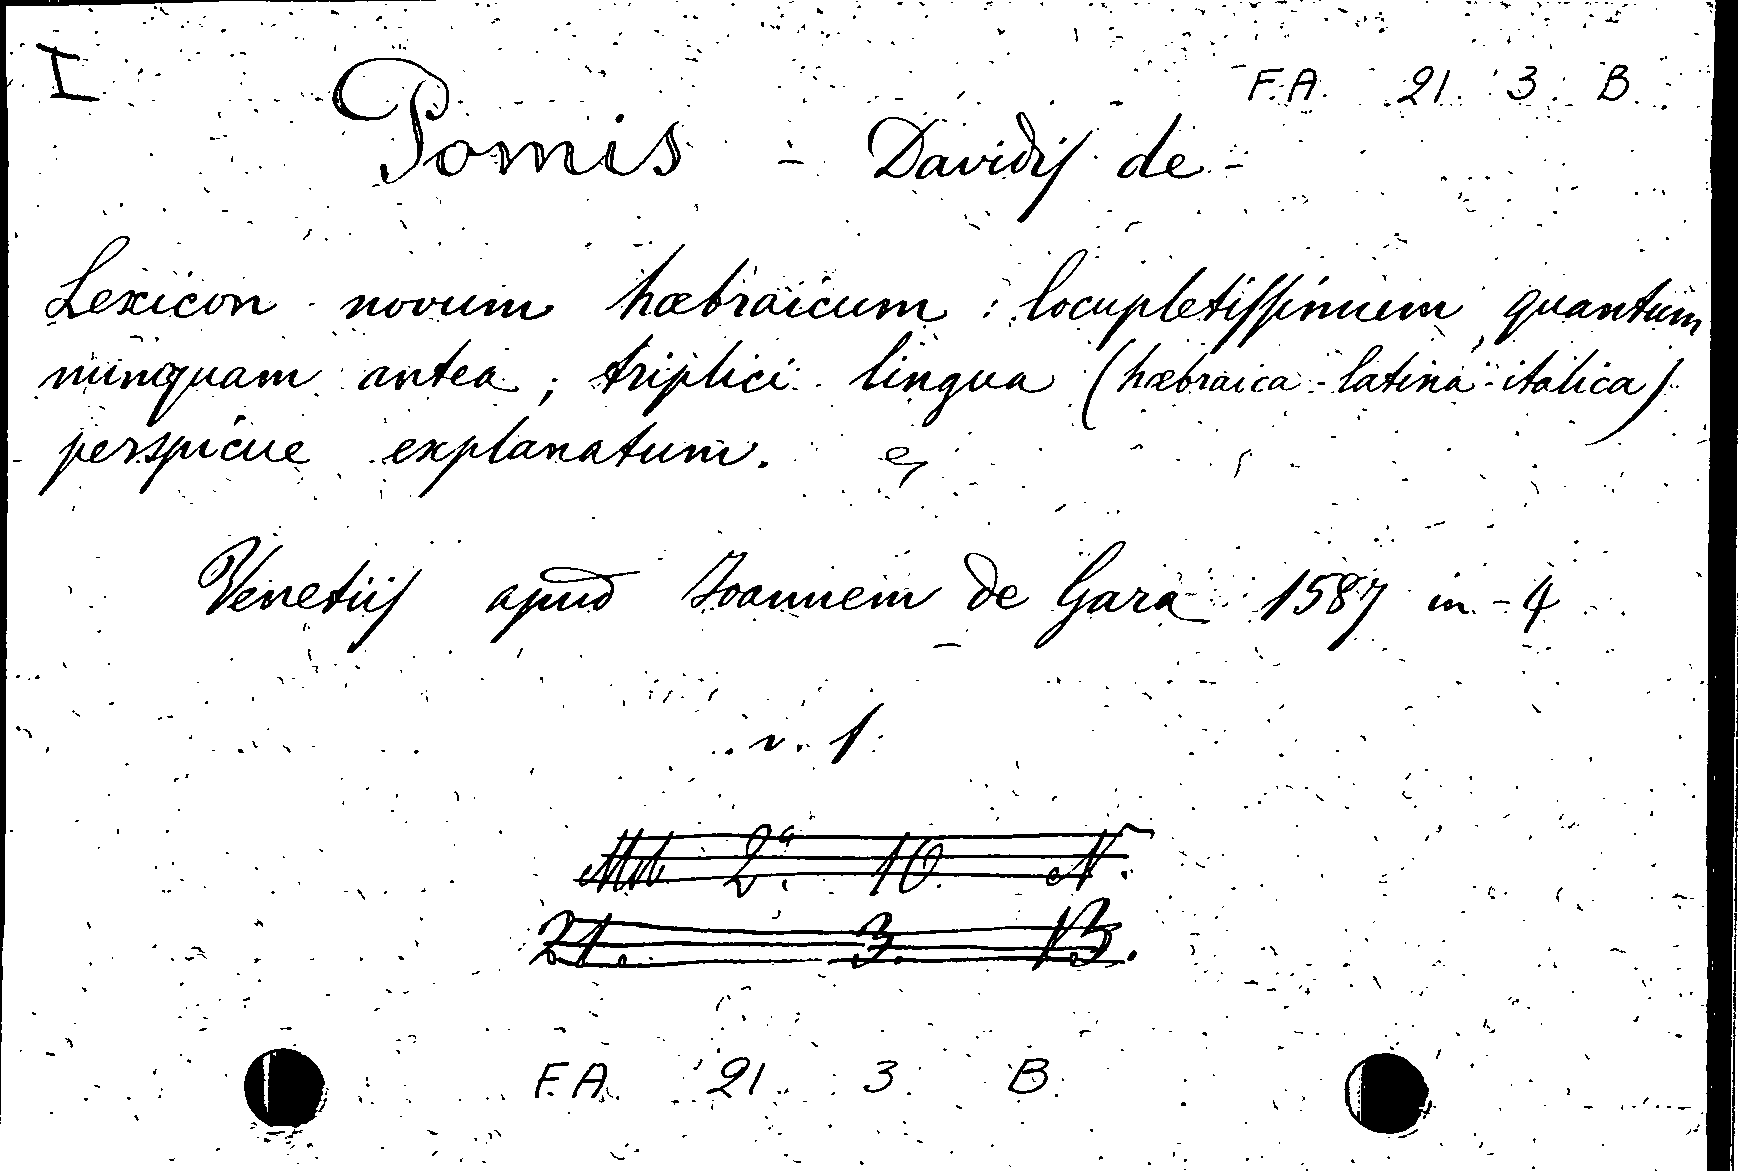 I
F.A. 21. 3. B.
Pomis - Davidis de -
Lexicon novum hæbraicum : locupletissimum, quantum
nunquam antea ; triplici lingua (hæbraica - latina - italica)
perspicue explanatum.
Venetiis apud Joannem de Gara 1587 in - 4
v. 1.
2ª. 10. N.
21. 3. B.
F.A. 21. 3. B.